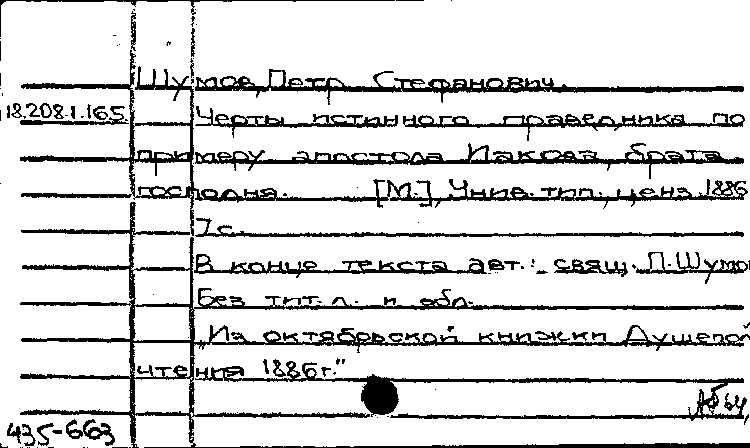 Шумов, Петр Стефанович.
18.208.1.165 Черты истинного праведника по
примеру апостола Иакова, брата
господня. [М.], Унив. тип., ценз. 1886
7 с.
В конце текста авт.: свящ. П. Шумов
Без тит. л. и обл.
"Из октябрьской книжки Душепол
чтения 1886 г."
435-663